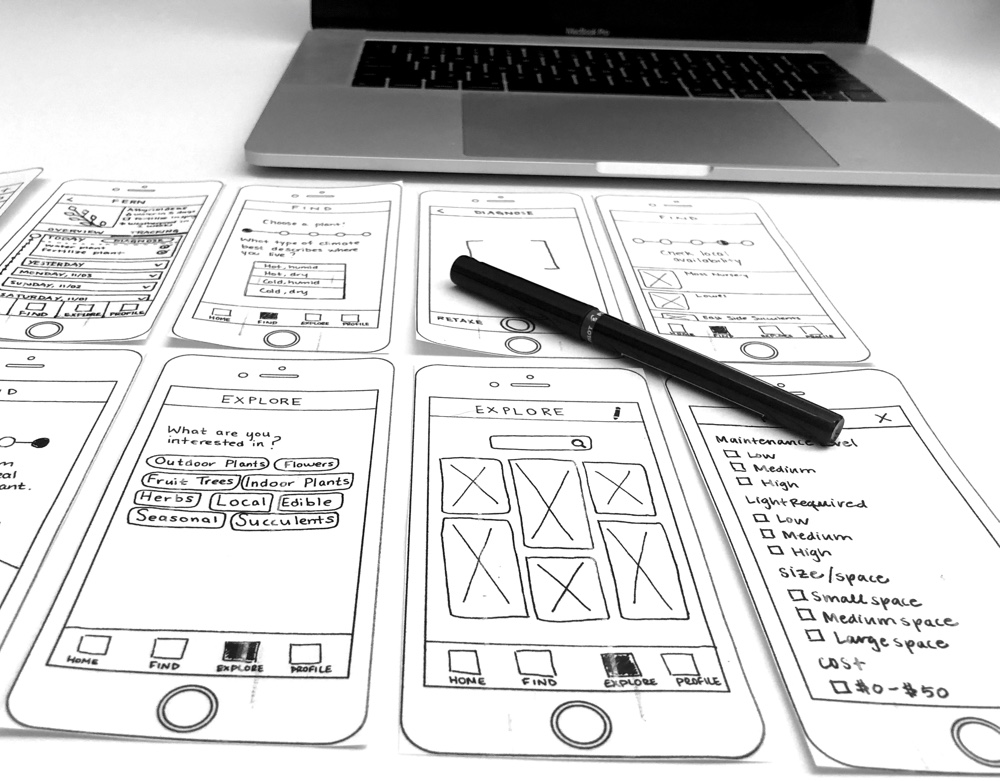 MacBook Pro
FERN
OVERVIEW TRACKING
TODAY DIAGNOSE
Water plant
Fertilize plant
YESTERDAY
MONDAY, 11/03
SUNDAY, 11/02
SATURDAY, 11/01
FIND EXPLORE PROFILE
FIND
Choose a plant!
What type of climate
best describes where
you live?
Hot, humid
Hot, dry
Cold, humid
Cold, dry
HOME FIND EXPLORE PROFILE
DIAGNOSE
RETAKE
FIND
Check local
availability
Moss Nursery
Lowes
East Side Succulents
D
ant.
EXPLORE
What are you
interested in?
Outdoor Plants Flowers
Fruit Trees Indoor Plants
Herbs Local Edible
Seasonal Succulents
HOME FIND EXPLORE PROFILE
EXPLORE
HOME FIND EXPLORE PROFILE
X
Maintenance
Low
Medium
High
Light Required
Low
Medium
High
Size/space
Small space
Medium space
Large space
Cost
$0-$50